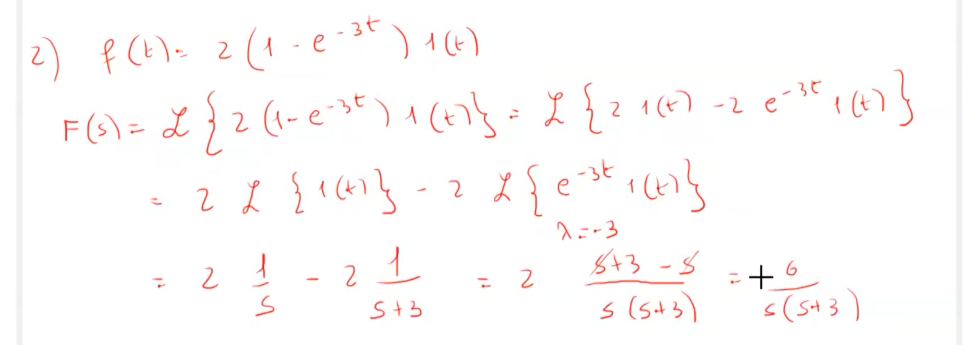 2) f(t) = 2 (1 - e^{-3t}) 1(t)
F(s) = ℒ {2 (1 - e^{-3t}) 1(t)} = ℒ {2 1(t) - 2 e^{-3t} 1(t)}
= 2 ℒ {1(t)} - 2 ℒ {e^{-3t} 1(t)}
λ = -3
= 2 \frac{1}{s} - 2 \frac{1}{s+3} = 2 \frac{s+3-s}{s(s+3)} = + \frac{6}{s(s+3)}